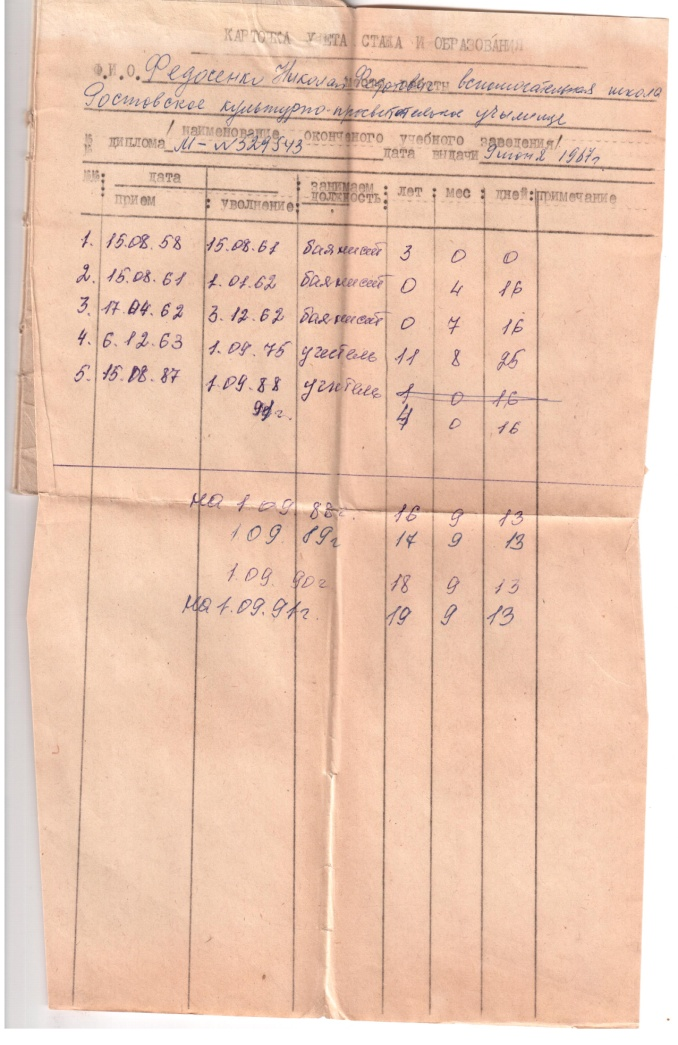 КАРТОЧКА УЧЕТА СТАЖА И ОБРАЗОВАНИЯ
Ф.И.О. Федосенко Николай вспомогательная школа
Ростовское культурно-просветительное училище
/наименование оконченого учебного заведения/
№№ диплома М-№329543 дата выдачи 9 июня 1967г
№№ : дата : занимаем должность : лет : мес : дней : примечание
прием : уволнение
1. 15.08.58 15.08.61 баянист 3 0 0
2. 15.08.61 1.01.62 баянист 0 4 16
3. 17.04.62 3.12.62 баянист 0 7 16
4. 6.12.63 1.09.75 учитель 11 8 25
5. 15.08.87 1.09.88 учитель 1 0 16
91г. 4 0 16
на 1.09.88г. 16 9 13
1.09.89г 17 9 13
1.09.90г 18 9 13
на 1.09.91г. 19 9 13